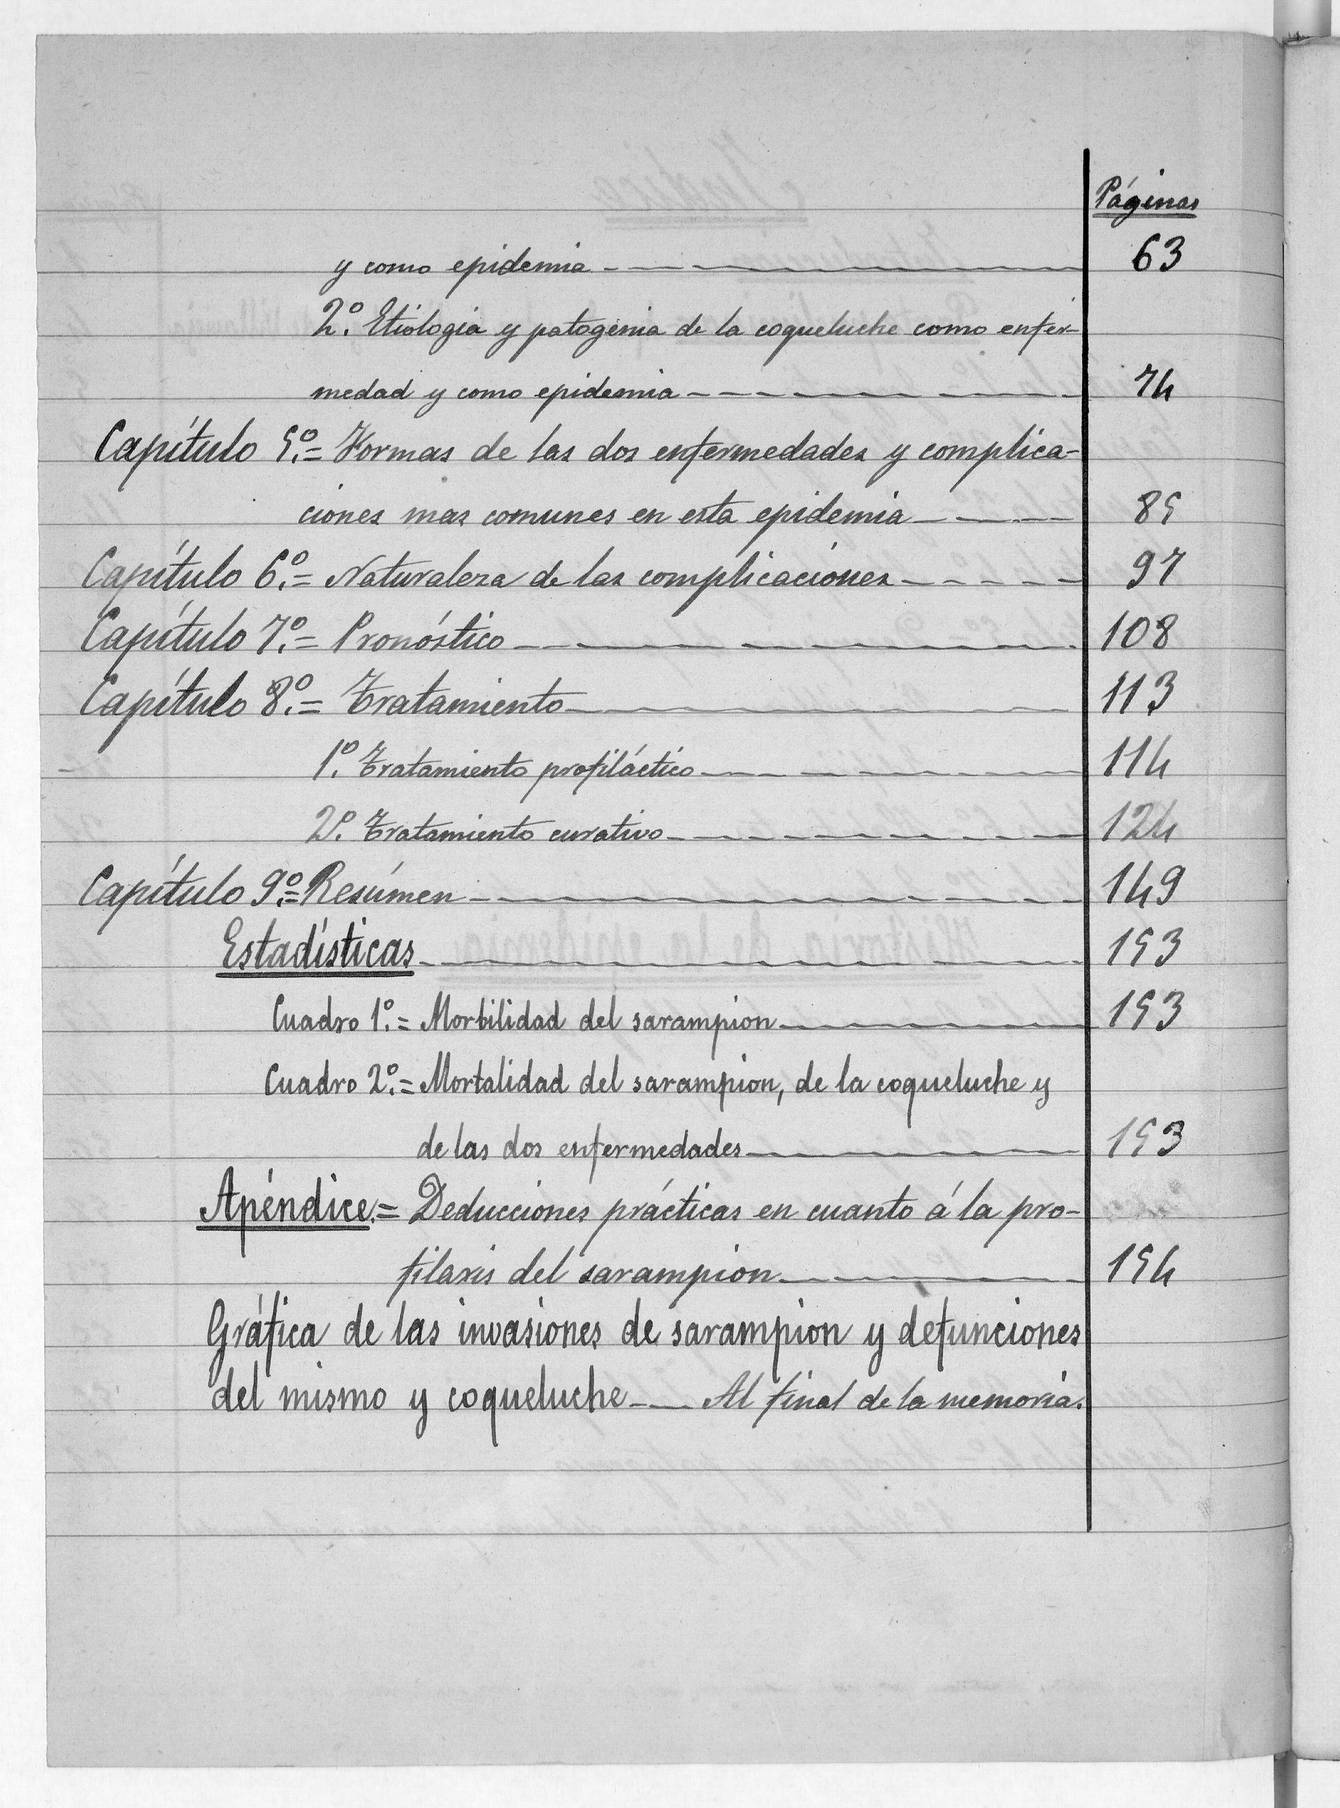 Páginas
y como epidemia 63
2º. Etiología y patogenia de la coqueluche como enfer-
medad y como epidemia 74
Capítulo 5º.= Formas de las dos enfermedades y complica-
ciones mas comunes en esta epidemia 85
Capítulo 6º.= Naturaleza de las complicaciones 97
Capítulo 7º.= Pronóstico 108
Capítulo 8º.= Tratamiento 113
1º. Tratamiento profiláctico 114
2º. Tratamiento curativo 124
Capítulo 9º.= Resúmen 149
Estadísticas 153
Cuadro 1º.= Morbilidad del sarampion 153
Cuadro 2º.= Mortalidad del sarampion, de la coqueluche y
de las dos enfermedades 153
Apéndice.= Deducciones prácticas en cuanto á la pro-
filaxis del sarampion 154
Gráfica de las invasiones de sarampion y defunciones
del mismo y coqueluche Al final de la memoria.